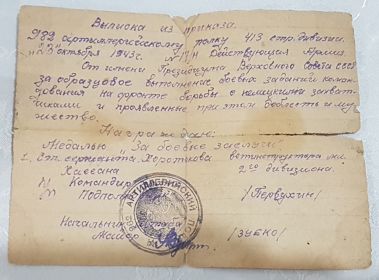 Выписка из приказа.
982 артиллерийскому полку 413 стр. дивизии.
"23" октября 1943 г. Действующая Армия
От имени Президиума Верховного Совета СССР
за образцовое выполнение боевых заданий коман-
дования на фронте борьбы с немецкими захват-
чиками и проявленные при этом доблесть и му-
жество.
Награждаю:
Медалью "За боевые заслуги"
1. Ст. сержанта Короткова ветинструктора
Хассана 2го дивизиона.
Командир
Подпол /Первухин/
Начальник
Майор /Зубко/
АРТИЛЛЕРИЙСКИЙ ПОЛК